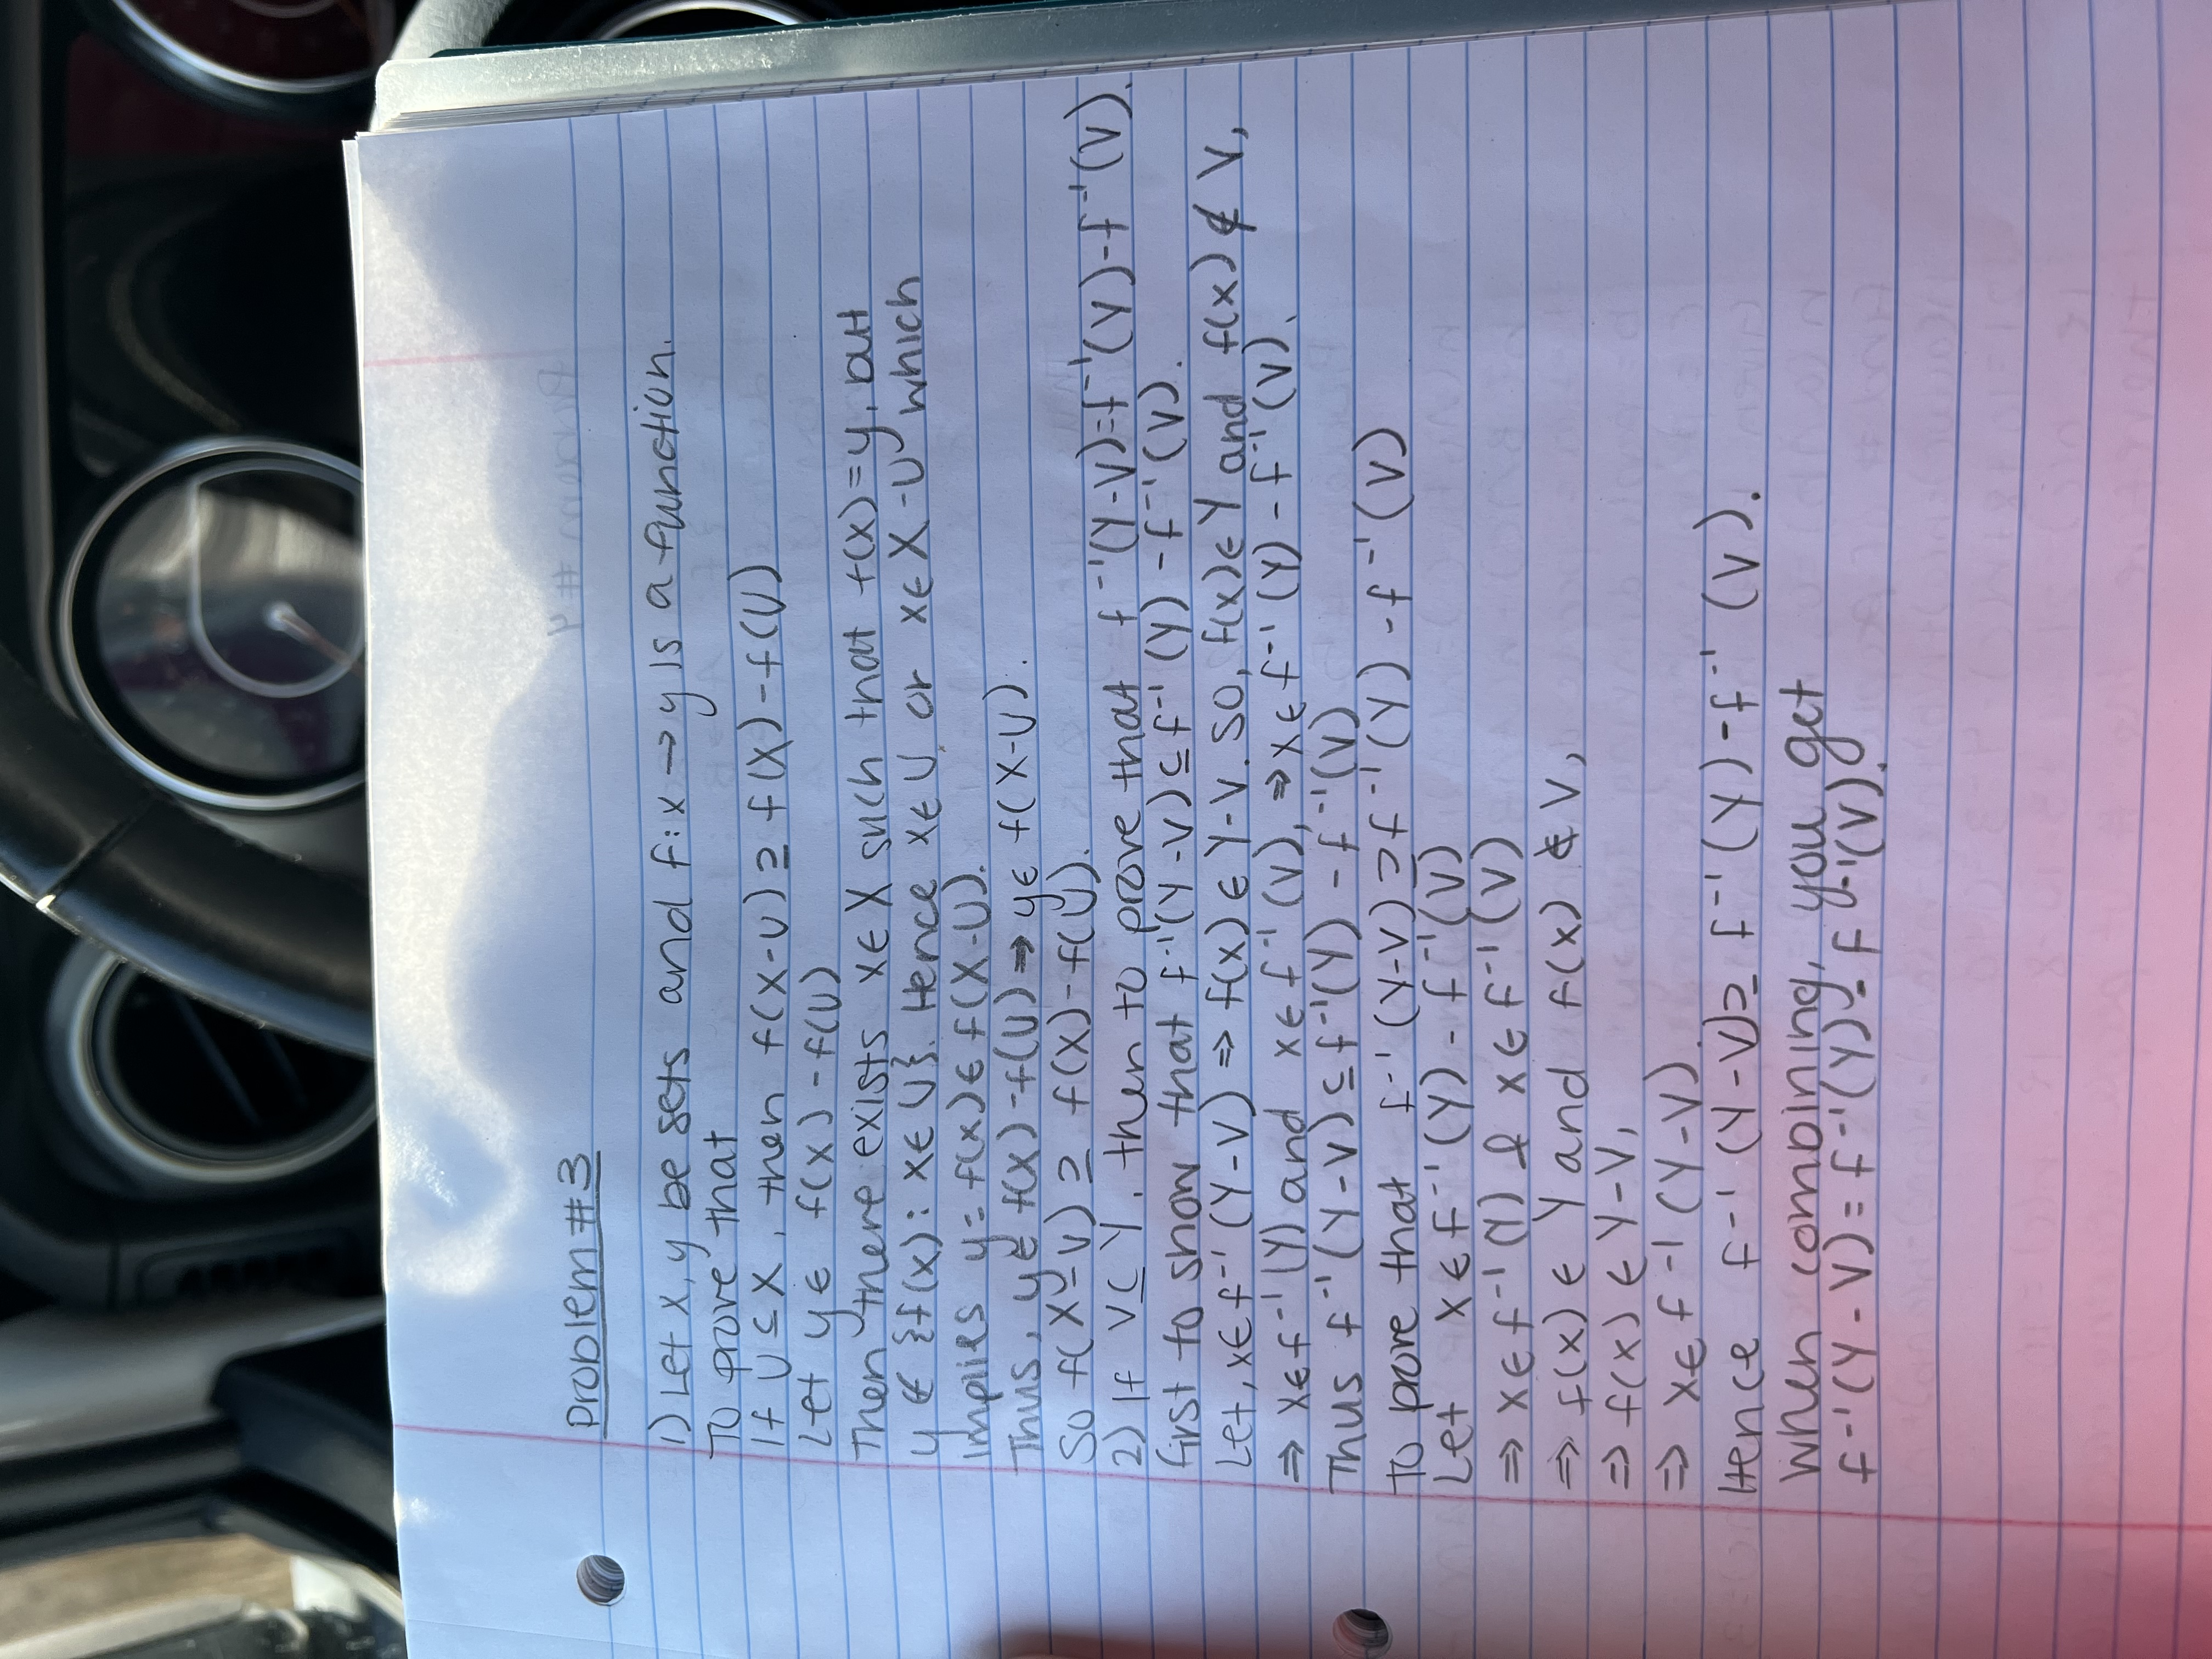 Problem #3
1) Let x, y be sets and f: x → y is a function.
To prove that
If U ⊆ X, then f(X-U) ⊇ f(X)-f(U)
Let y ∈ f(X) - f(U)
Then there exists x ∈ X such that f(x)=y, but
y ∉ {f(x): x ∈ U}. Hence x ∈ U, or x ∈ X-U which
implies y = f(x) ∈ f(X-U).
Thus, y ∈ f(X)-f(U) ⇒ y ∈ f(X-U).
So f(X-U) ⊇ f(X)-f(U).
2) If V ⊆ Y, then to prove that f⁻¹(Y-V)=f⁻¹(Y)-f⁻¹(V).
first to show that f⁻¹(Y-V) ⊆ f⁻¹(Y) - f⁻¹(V).
Let, x ∈ f⁻¹(Y-V) ⇒ f(x) ∈ Y-V. So, f(x) ∈ Y and f(x) ∉ V,
⇒ x ∈ f⁻¹(Y) and x ∈ f⁻¹(V), ⇒ x ∈ f⁻¹(Y) - f⁻¹(V).
Thus f⁻¹(Y-V) ⊆ f⁻¹(Y) - f⁻¹(V)
To prove that f⁻¹(Y-V) ⊇ f⁻¹(Y) - f⁻¹(V)
Let x ∈ f⁻¹(Y) - f⁻¹(V)
⇒ x ∈ f⁻¹(Y) & x ∈ f⁻¹(V)
⇒ f(x) ∈ Y and f(x) ∉ V,
⇒ f(x) ∈ Y-V,
⇒ x ∈ f⁻¹(Y-V).
Hence f⁻¹(Y-V) ⊇ f⁻¹(Y)-f⁻¹(V).
When combining, you get
f⁻¹(Y-V) = f⁻¹(Y) - f⁻¹(V).